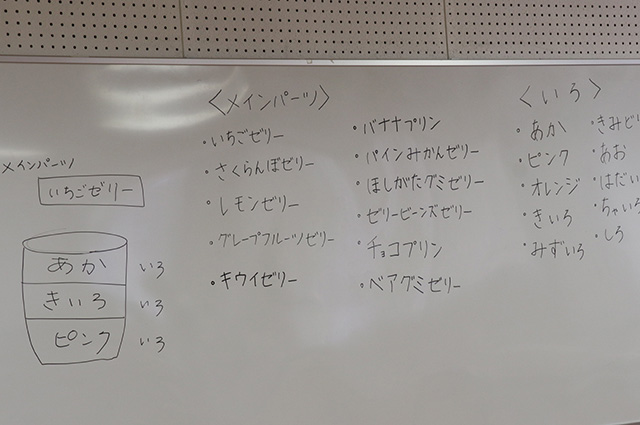 メインパーツ
いちごゼリー
あか いろ
きいろ いろ
ピンク いろ
〈メインパーツ〉
・いちごゼリー
・さくらんぼゼリー
・レモンゼリー
・グレープフルーツゼリー
・キウイゼリー
・バナナプリン
・パインみかんゼリー
・ほしがたグミゼリー
・ゼリービーンズゼリー
・チョコプリン
・ベアグミゼリー
〈いろ〉
・あか
・ピンク
・オレンジ
・きいろ
・みずいろ
・きみどり
・あお
・はだい
・ちゃいろ
・しろ